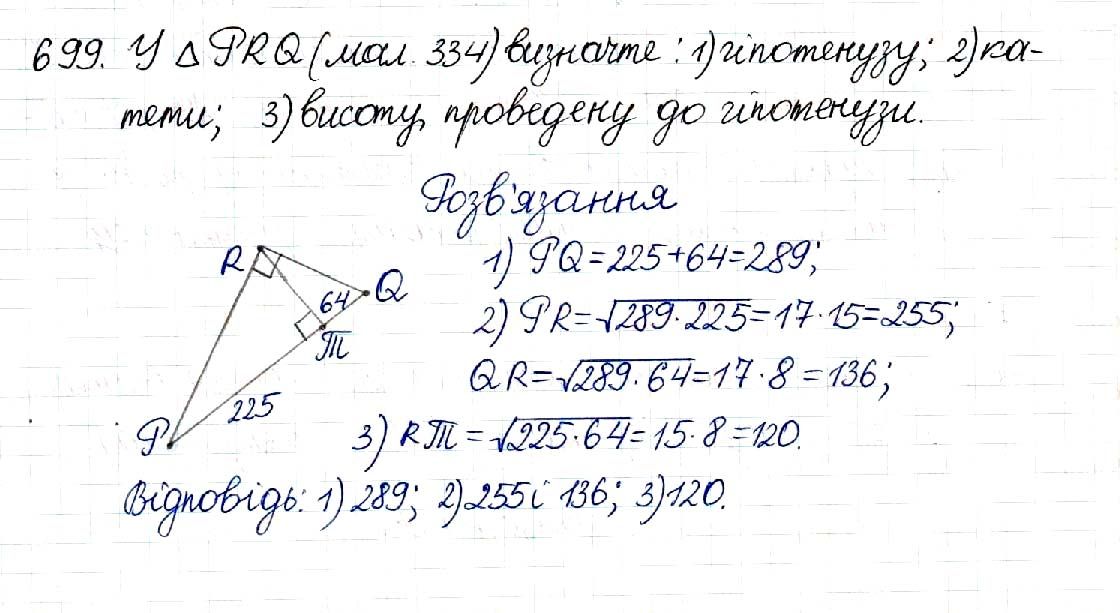 699. У △ PRQ (мал. 334) визначте: 1) гіпотенузу; 2) ка-
тети; 3) висоту, проведену до гіпотенузи.
Розв'язання
1) PQ = 225 + 64 = 289;
2) PR = √289·225 = 17·15 = 255;
QR = √289·64 = 17·8 = 136;
3) RT = √225·64 = 15·8 = 120.
R
64
Q
T
225
P
Відповідь: 1) 289; 2) 255 і 136; 3) 120.